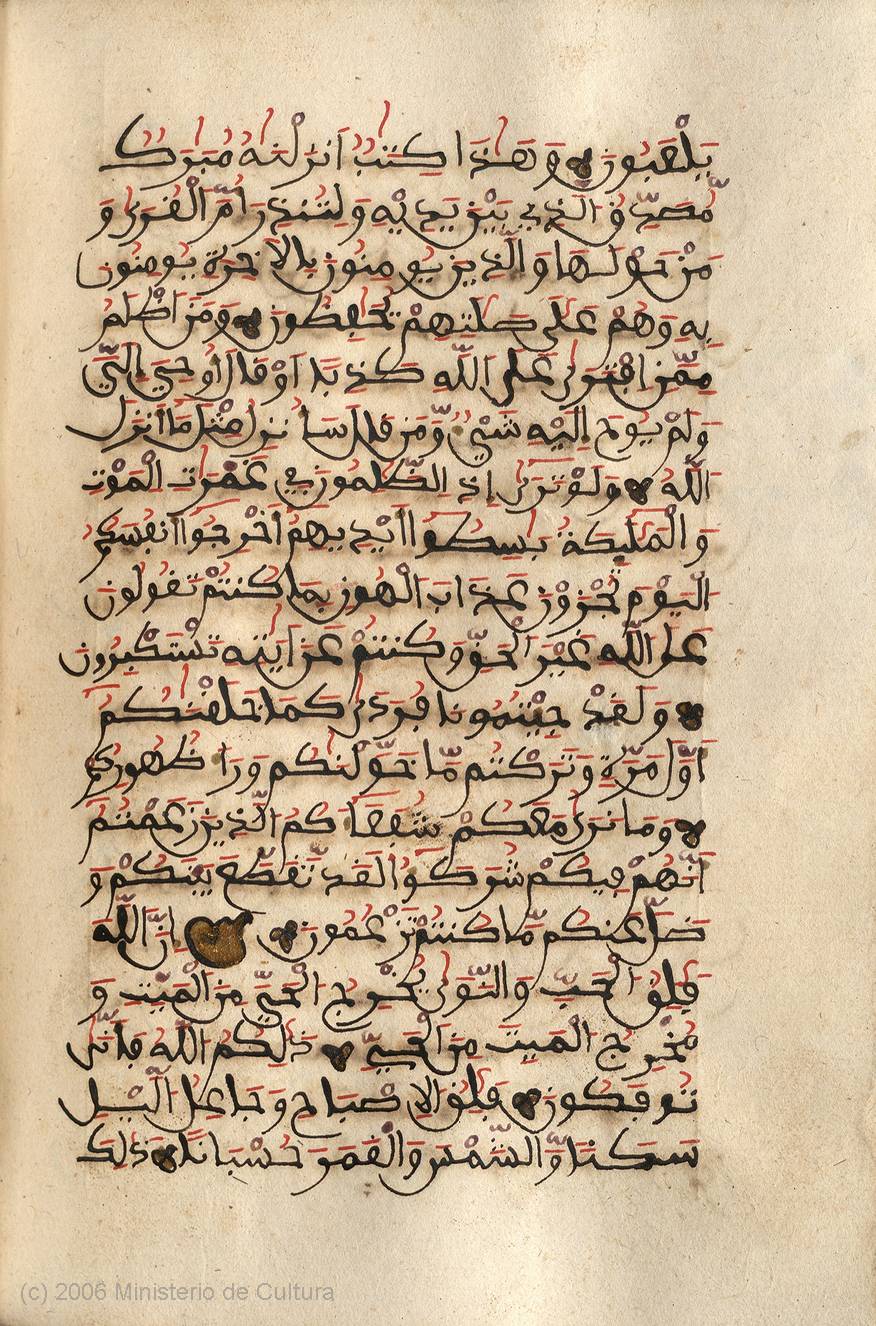 يَلْعَبُونَ وَهَٰذَا كِتَٰبٌ اَنزَلْنَٰهُ مُبَٰرَكٌ
مُّصَدِّقُ الَّذِي بَيْنَ يَدَيْهِ وَلِتُنذِرَ أُمَّ الْقُر۪ىٰ وَ
مَنْ حَوْلَهَا وَالَّذِينَ يُومِنُونَ بِالَاخِرَةِ يُومِنُونَ
بِهِ وَهُمْ عَلَىٰ صَلَٰتِهِمْ يُحَٰفِظُونَ وَمَنَ اَظْلَمُ
مِمَّنِ اِفْتَر۪ىٰ عَلَى اَللَّهِ كَذِبًا اَوْ قَالَ أُوحِيَ إِلَيَّ
وَلَمْ يُوحَ إِلَيْهِ شَيْءٌ وَّمَن قَالَ سَأُنزِلُ مِثْلَ مَا أَنزَلَ
اَللَّهُ وَلَوْ تَر۪ىٰ إِذِ الظَّٰلِمُونَ فِي غَمَرَٰتِ الْمَوْتِ
وَالْمَلَٰئِكَةُ بَٰسِطُوا أَيْدِيهِمُ أَخْرِجُوا أَنفُسَكُمُ
الْيَوْمَ تُجْزَوْنَ عَذَابَ الْهُونِ بِمَا كُنتُمْ تَقُولُونَ
عَلَى اَللَّهِ غَيْرَ الْحَقِّ وَكُنتُمْ عَنَ اٰيَٰتِهِ تَسْتَكْبِرُونَ
وَلَقَدْ جِيْتُمُونَا فُرَٰدَىٰ كَمَا خَلَقْنَٰكُمُ
أَوَّلَ مَرَّةٍ وَتَرَكْتُم مَّا خَوَّلْنَٰكُمْ وَرَا ظُهُورِكُمْ
وَمَا نَر۪ىٰ مَعَكُمْ شُفَعَاكُمُ الَّذِينَ زَعَمْتُمُ
أَنَّهُمْ فِيكُمْ شُرَكَٰؤُا لَقَد تَّقَطَّعَ بَيْنَكُمْ وَ
ضَلَّ عَنكُم مَّا كُنتُمْ تَزْعُمُونَ إِنَّ اَللَّهَ
فَٰلِقُ الْحَبِّ وَالنَّو۪ىٰ يُخْرِجُ الْحَيَّ مِنَ الْمَيِّتِ وَ
مُخْرِجُ الْمَيِّتِ مِنَ الْحَيِّ ذَٰلِكُمُ اللَّهُ فَأَنّ۪ىٰ
تُوفَكُونَ فَٰلِقُ الِاصْبَاحِ وَجَاعِلُ الَّيْلِ
سَكَنًا وَّالشَّمْسِ وَالْقَمَرَ حُسْبَانًا ذَٰلِكَ
(c) 2006 Ministerio de Cultura